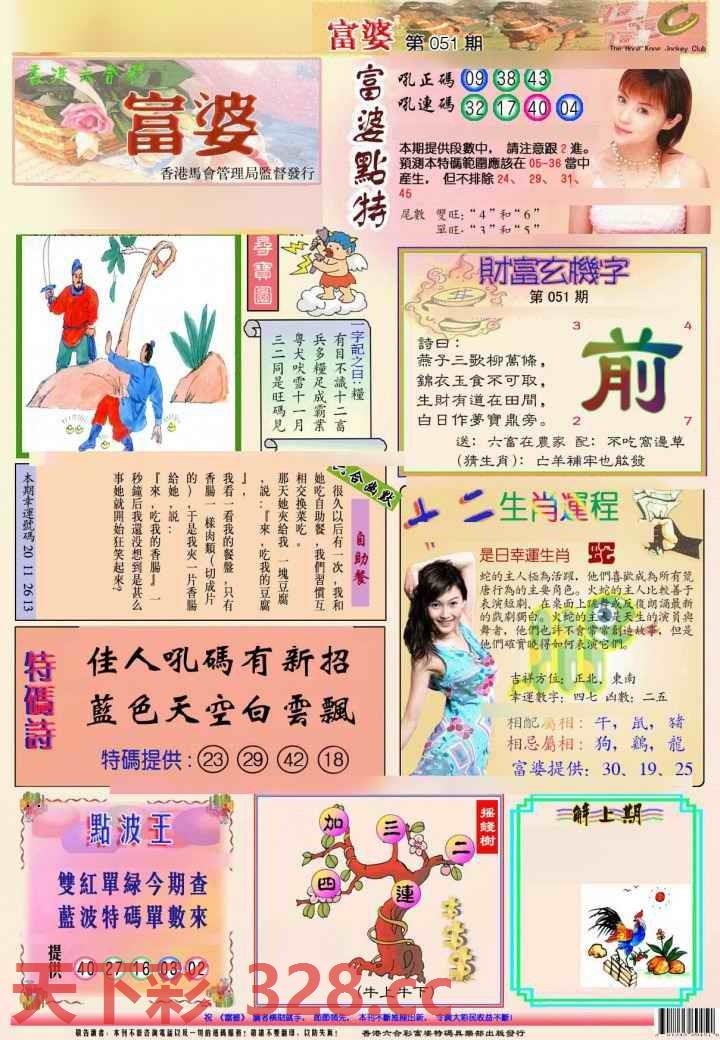 富婆 第 051 期
The Hong Kong Jockey Club
香港六合彩
富婆
香港馬會管理局監督發行
富婆點特
吼正碼 09 38 43
吼連碼 32 17 40 04
本期提供段數中， 請注意跟 2 進。
預測本特碼範圍應該在 05-36 當中
產生， 但不排除 24、 29、 31、
45
尾數 雙旺：“4”和“6”
單旺：“3”和“5”
尋寶圖
一字記之曰：糧
有目不識十二畜
兵多糧足成霸業
粵犬吠雪十一月
三二同是旺碼見
財富玄機字
第 051 期
詩曰：
燕子三歌柳萬條，
錦衣玉食不可取，
生財有道在田間，
白日作夢寶鼎旁。
3 4
前
2 7
送：六畜在農家 配：不吃窩邊草
（猜生肖）：亡羊補牢也能發
六合幽默
自助餐
很久以后有一次，我和
她吃自助餐，我們習慣互
相交換菜吃。
那天她夾給我一塊豆腐
，說：『來，吃我的豆腐
』，
我看一看我的餐盤，只有
香腸一樣肉類（切成片
的），于是我夾一片香腸
給她，說：
『來，吃我的香腸』一
秒鐘后我還沒想到是甚么
事她就開始狂笑起來？
本期幸運號碼 20 11 26 13
十二生肖運程
是日幸運生肖 蛇
蛇的主人極為活躍， 他們喜歡成為所有荒
唐行為的主要角色。火蛇的主人比較善于
表演短劇，在桌面上跳舞或反復朗誦最新
的戲劇獨白。火蛇的主人是天生的演員與
舞者，他們也許不會常常創造故事，但是
他們確實曉得如何表演它們。
吉祥方位：正北，東南
幸運數字：四七 凶數：二五
相配屬相：牛，鼠，豬
相忌屬相：狗，鷄，龍
富婆提供：30、19、25
特碼詩
佳人吼碼有新招
藍色天空白雲飄
特碼提供：23 29 42 18
點波王
雙紅單緑今期查
藍波特碼單數來
提供 40 27 16 03 02
搖錢樹
加 三 二
四 連
（牛上牛下）
解上期
天下彩 328.cc
祝 《富婆》 讀者橫財就手， 節節領先，
敬告讀者：本刊不設咨詢電話以及一切的透碼服務！敬請不要翻印，以防失真！
香港六合彩富婆特碼具樂部出版發行